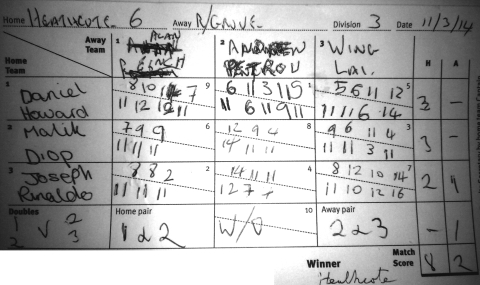 Home HEATHCOTE 6 Away R/GROVE Division 3 Date 11/3/14
Away Team 1 ALAN 2 ANDREW PETROU 3 WING LAI H A
Home Team
1 Daniel Howard 9 1 5 3 -
8 10 7 6 11 3 11 5 5 6 11 12
11 12 11 11 6 11 9 11 11 11 6 14
2 Malik Diop 6 8 3 3 -
7 9 9 12 9 4 9 6 11 4
11 11 11 14 11 11 11 11 3 11
3 Joseph Rinaldo 2 4 7 2 1
8 8 2 14 11 11 8 12 10 14
11 11 11 12 7 11 10 12 16
Doubles Home pair 10 Away pair
1 2 V 2 3 1 & 2 W/O 2 & 3 - 1
Winner Heathcote Match Score 8 2